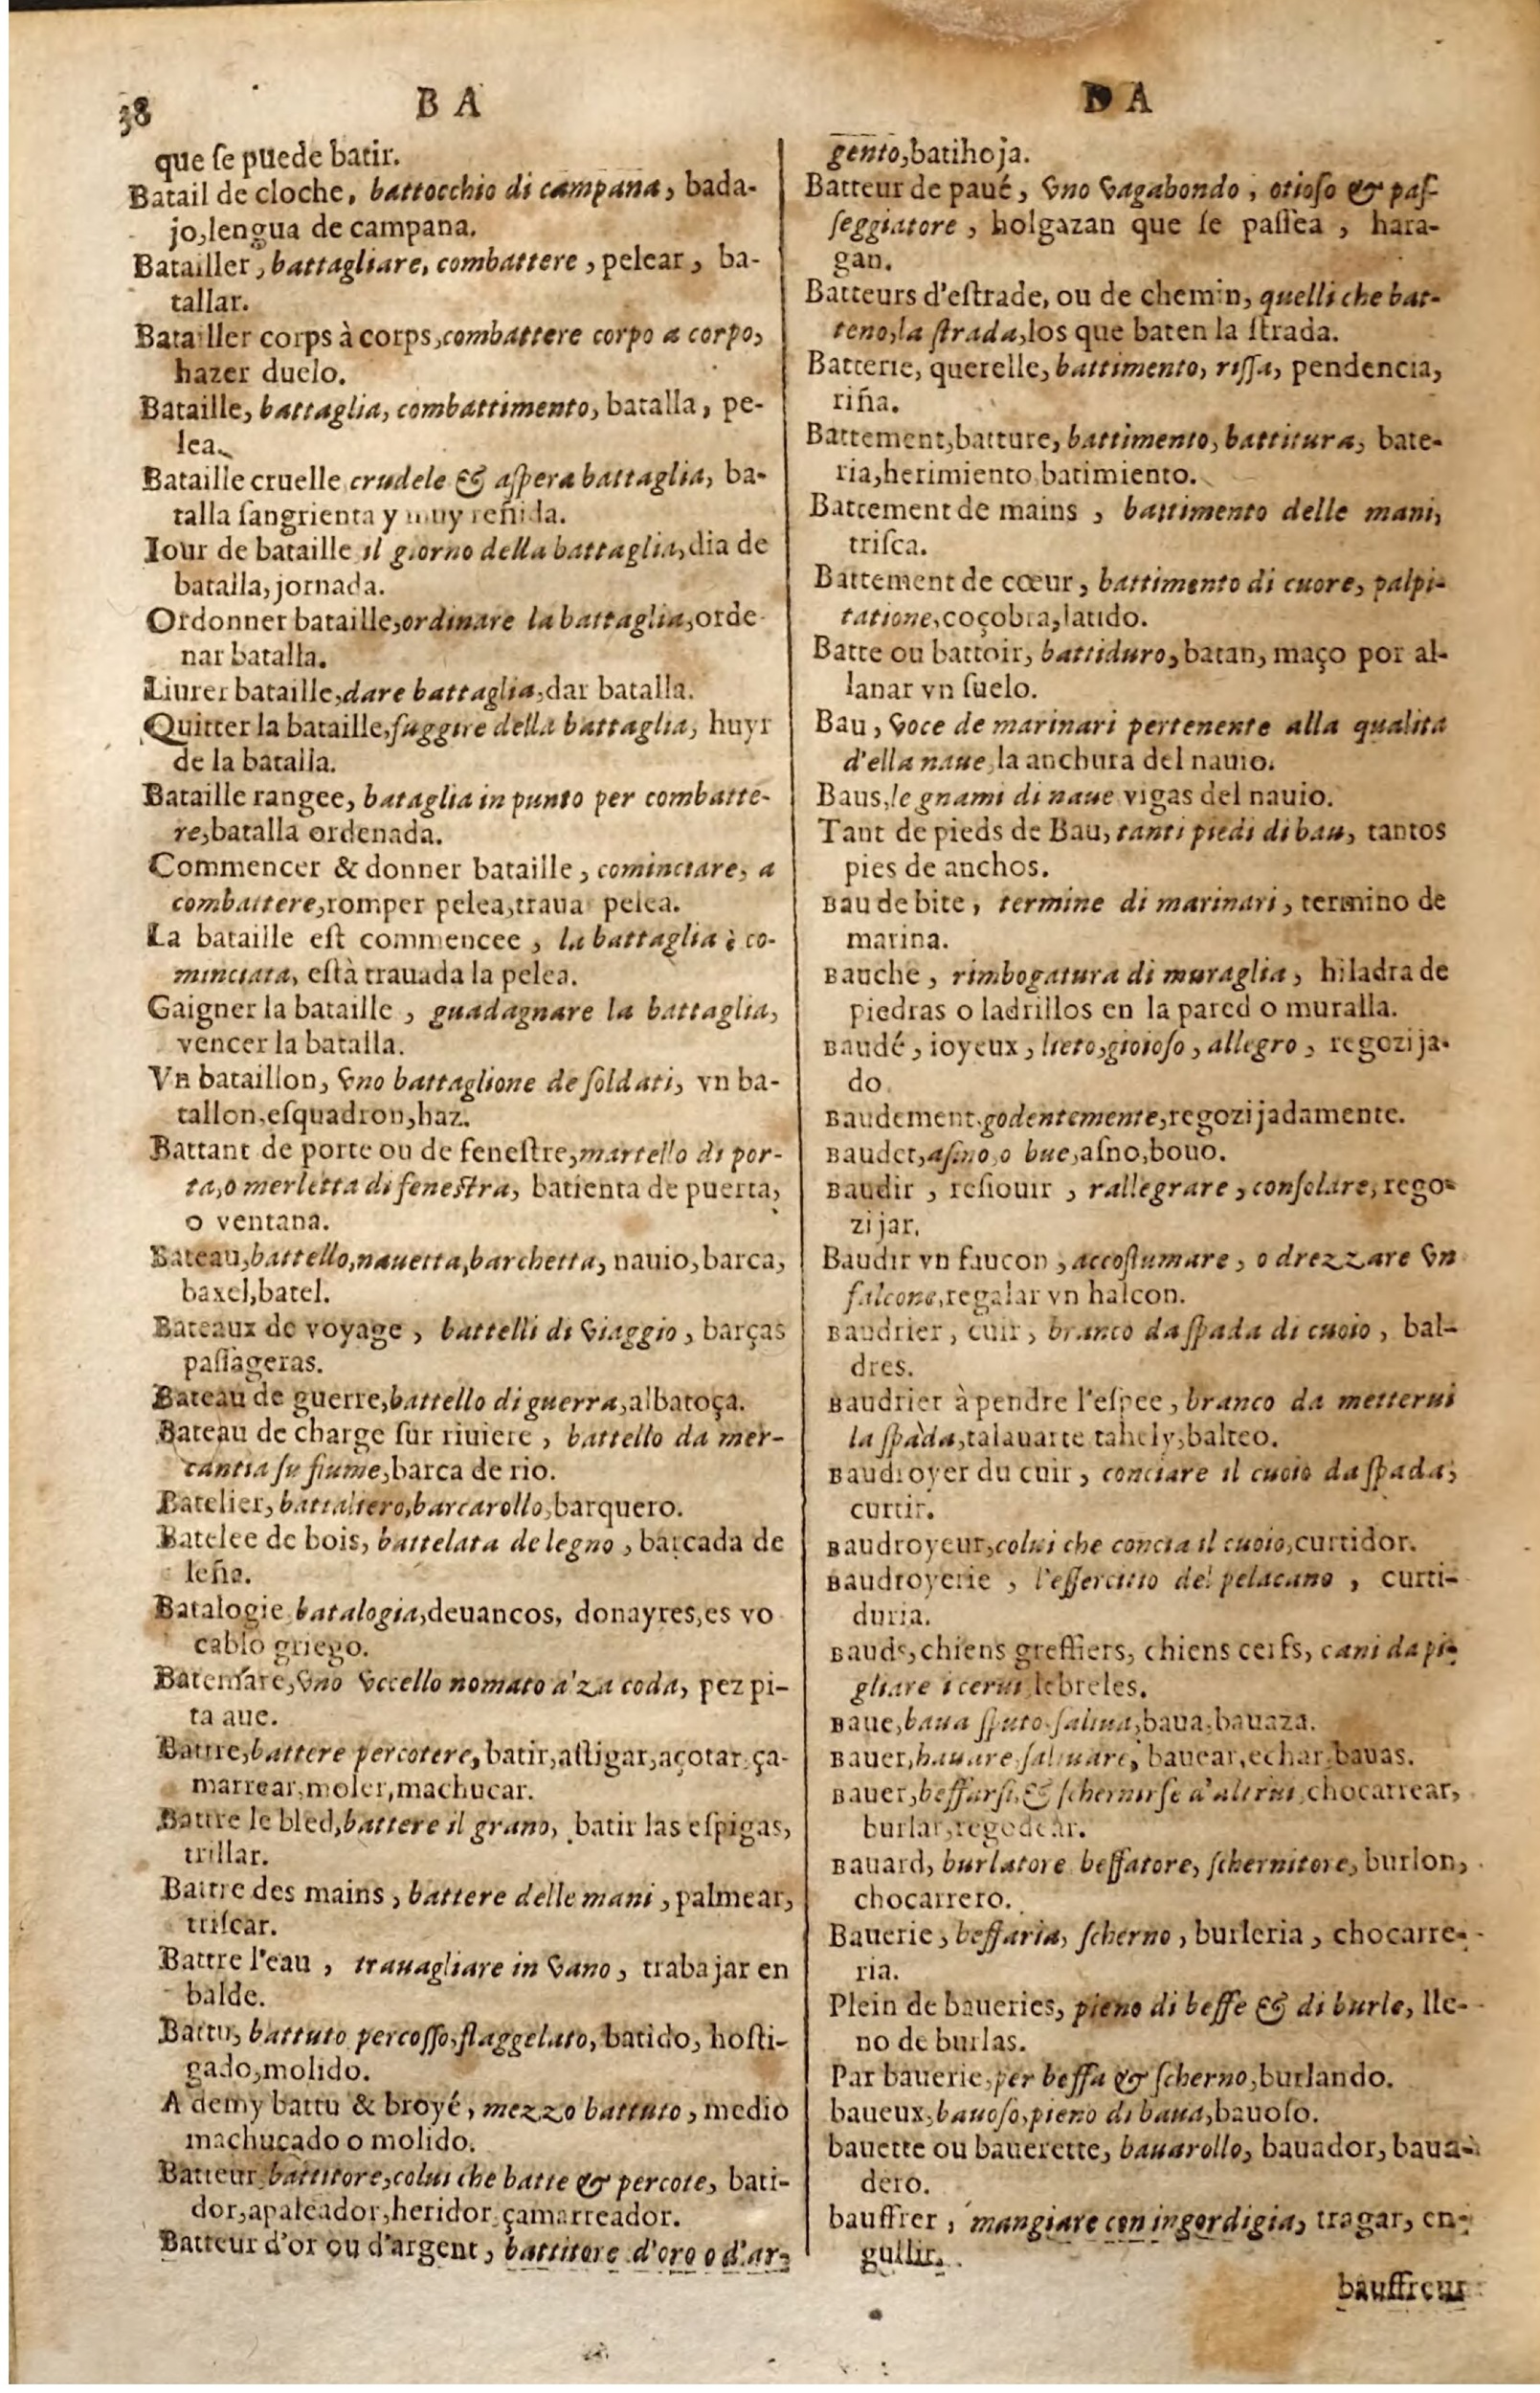 38 BA
que ſe puede batir.
Batail de cloche, battocchio di campana, bada-
jo,lengua de campana.
Batailler, battagliare, combattere, pelear, ba-
tallar.
Batailler corps à corps,combattere corpo a corpo,
hazer duelo.
Bataille, battaglia, combattimento, batalla, pe-
lea.
Bataille cruelle crudele & aſpera battaglia, ba-
talla ſangrienta y muy reñida.
Iour de bataille il giorno della battaglia,dia de
batalla,jornada.
Ordonner bataille,ordinare la battaglia,orde-
nar batalla.
Liurer bataille,dare battaglia,dar batalla.
Quitter la bataille,fuggire della battaglia, huyr
de la batalla.
Bataille rangee, bataglia in punto per combatte-
re,batalla ordenada.
Commencer & donner bataille, cominciare, a
combattere,romper pelea,traua pelea.
La bataille eſt commencee, la battaglia è co-
minciata, eſtà trauada la pelea.
Gaigner la bataille, guadagnare la battaglia,
vencer la batalla.
Vn bataillon, vno battaglione de ſoldati, vn ba-
tallon,eſquadron,haz.
Battant de porte ou de feneſtre,martello di por-
ta,o merletta di feneſtra, batienta de puerta,
o ventana.
Bateau,battello,nauetta,barchetta, nauio,barca,
baxel,batel.
Bateaux de voyage, battelli di viaggio, barças
paſſageras.
Bateau de guerre,battello di guerra,albatoça.
Bateau de charge ſur riuiere, battello da mer-
cantia ſu fiume,barca de rio.
Batelier, battaliero,barcarollo,barquero.
Batelee de bois, battelata de legno, barcada de
leña.
Batalogie batalogia,deuaneos, donayres,es vo
cablo griego.
Batemare,vno vccello nomato a'za coda, pez pi-
ta aue.
Battre,battere percotere,batir,aſtigar,açotar,ça-
marrear,moler,machucar.
Battre le bled,battere il grano, batir las eſpigas,
trillar.
Battre des mains, battere delle mani, palmear,
triſcar.
Battre l'eau, trauagliare in vano, trabajar en
balde.
Battu, battuto percoſſo,flaggelato, batido, hoſti-
gado,molido.
A demy battu & broyé, mezzo battuto, medio
machucado o molido.
Batteur battitore,colui che batte & percote, bati-
dor,apaleador,heridor,çamarreador.
Batteur d'or ou d'argent, battitore d'oro o d'ar-
BA
gento,batihoja.
Batteur de paué, vno vagabondo, otioſo & paſ-
ſeggiatore, holgazan que ſe paſſea, hara-
gan.
Batteurs d'eſtrade, ou de chemin, quelli che bat-
teno,la ſtrada,los que baten la ſtrada.
Batterie, querelle, battimento, riſſa, pendencia,
riña.
Battement,batture, battimento, battitura, bate-
ria,herimiento batimiento.
Battement de mains, battimento delle mani,
triſca.
Battement de cœur, battimento di cuore, palpi-
tatione,coçobra,latido.
Batte ou battoir, battiduro, batan, maço por al-
lanar vn ſuelo.
Bau, voce de marinari pertenente alla qualita
d'ella naue,la anchura del nauio.
Baus,legnami di naue vigas del nauio.
Tant de pieds de Bau, tanti piedi di bau, tantos
pies de anchos.
Bau de bite, termine di marinari, termino de
marina.
Bauche, rimbogatura di muraglia, hiladra de
piedras o ladrillos en la pared o muralla.
Baudé, ioyeux, lieto,gioioſo, allegro, regozija-
do.
Baudement,godentemente,regozijadamente.
Baudet,aſino,o bue,aſno,bouo.
Baudir, reſiouir, rallegrare, conſolare, rego-
zijar.
Baudir vn faucon, accoſtumare, o drezzare vn
falcone,regalar vn halcon.
Baudrier, cuir, branco da ſpada di cuoio, bal-
dres.
Baudrier à pendre l'eſpee, branco da metterui
la ſpada,talauarte tahely,balteo.
Baudroyer du cuir, conciare il cuoio da ſpada,
curtir.
Baudroyeur,colui che concia il cuoio,curtidor.
Baudroyerie, l'eſſercitio del pelacano, curti-
duria.
Bauds,chiens greffiers, chiens cerfs, cani da pi-
gliare i cerui lebreles.
Baue,baua ſputo.ſaliua,baua,bauaza.
Bauer,bauare ſaliuare, bauear,echar bauas.
Bauer,beffarſi,& ſchernirſe d'altrui chocarrear,
burlar,regodear.
Bauard, burlatore beffatore, ſchernitore, burlon,
chocarrero.
Bauerie, beffaria, ſcherno, burleria, chocarre-
ria.
Plein de baueries, pieno di beffe & di burle, lle-
no de burlas.
Par bauerie,per beffa & ſcherno,burlando.
baueux,bauoſo,pieno di baua,bauoſo.
bauette ou bauerette, bauarollo, bauador, baua-
dero.
bauffrer, mangiare con ingordigia, tragar, en-
gullir.
bauffreur